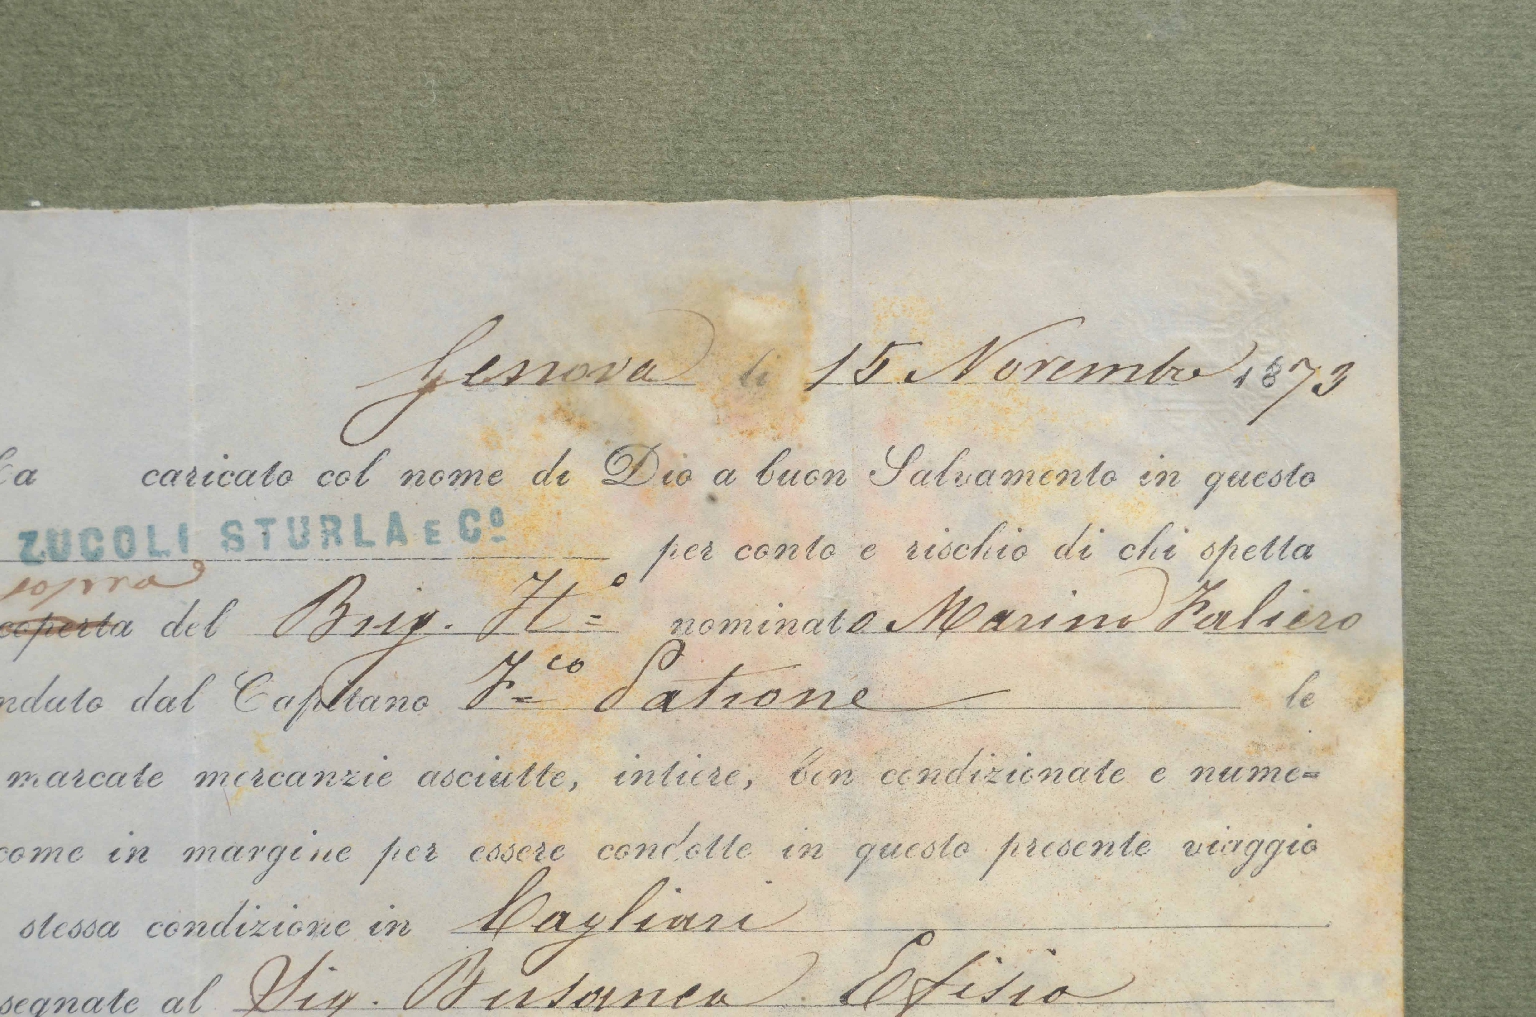 Genova li 15 Novembre 1873
Ha caricato col nome di Dio a buon Salvamento in questo
ZUCOLI STURLA E Cº
per conto e rischio di chi spetta
sopra
coperta del Brig. Itº nominato Marino Faliero
nduto dal Capitano Fco Patrone le
marcate mercanzie asciutte, intiere, ben condizionate e nume=
come in margine per essere condotte in questo presente viaggio
stessa condizione in Cagliari
segnate al Sig. Efisio